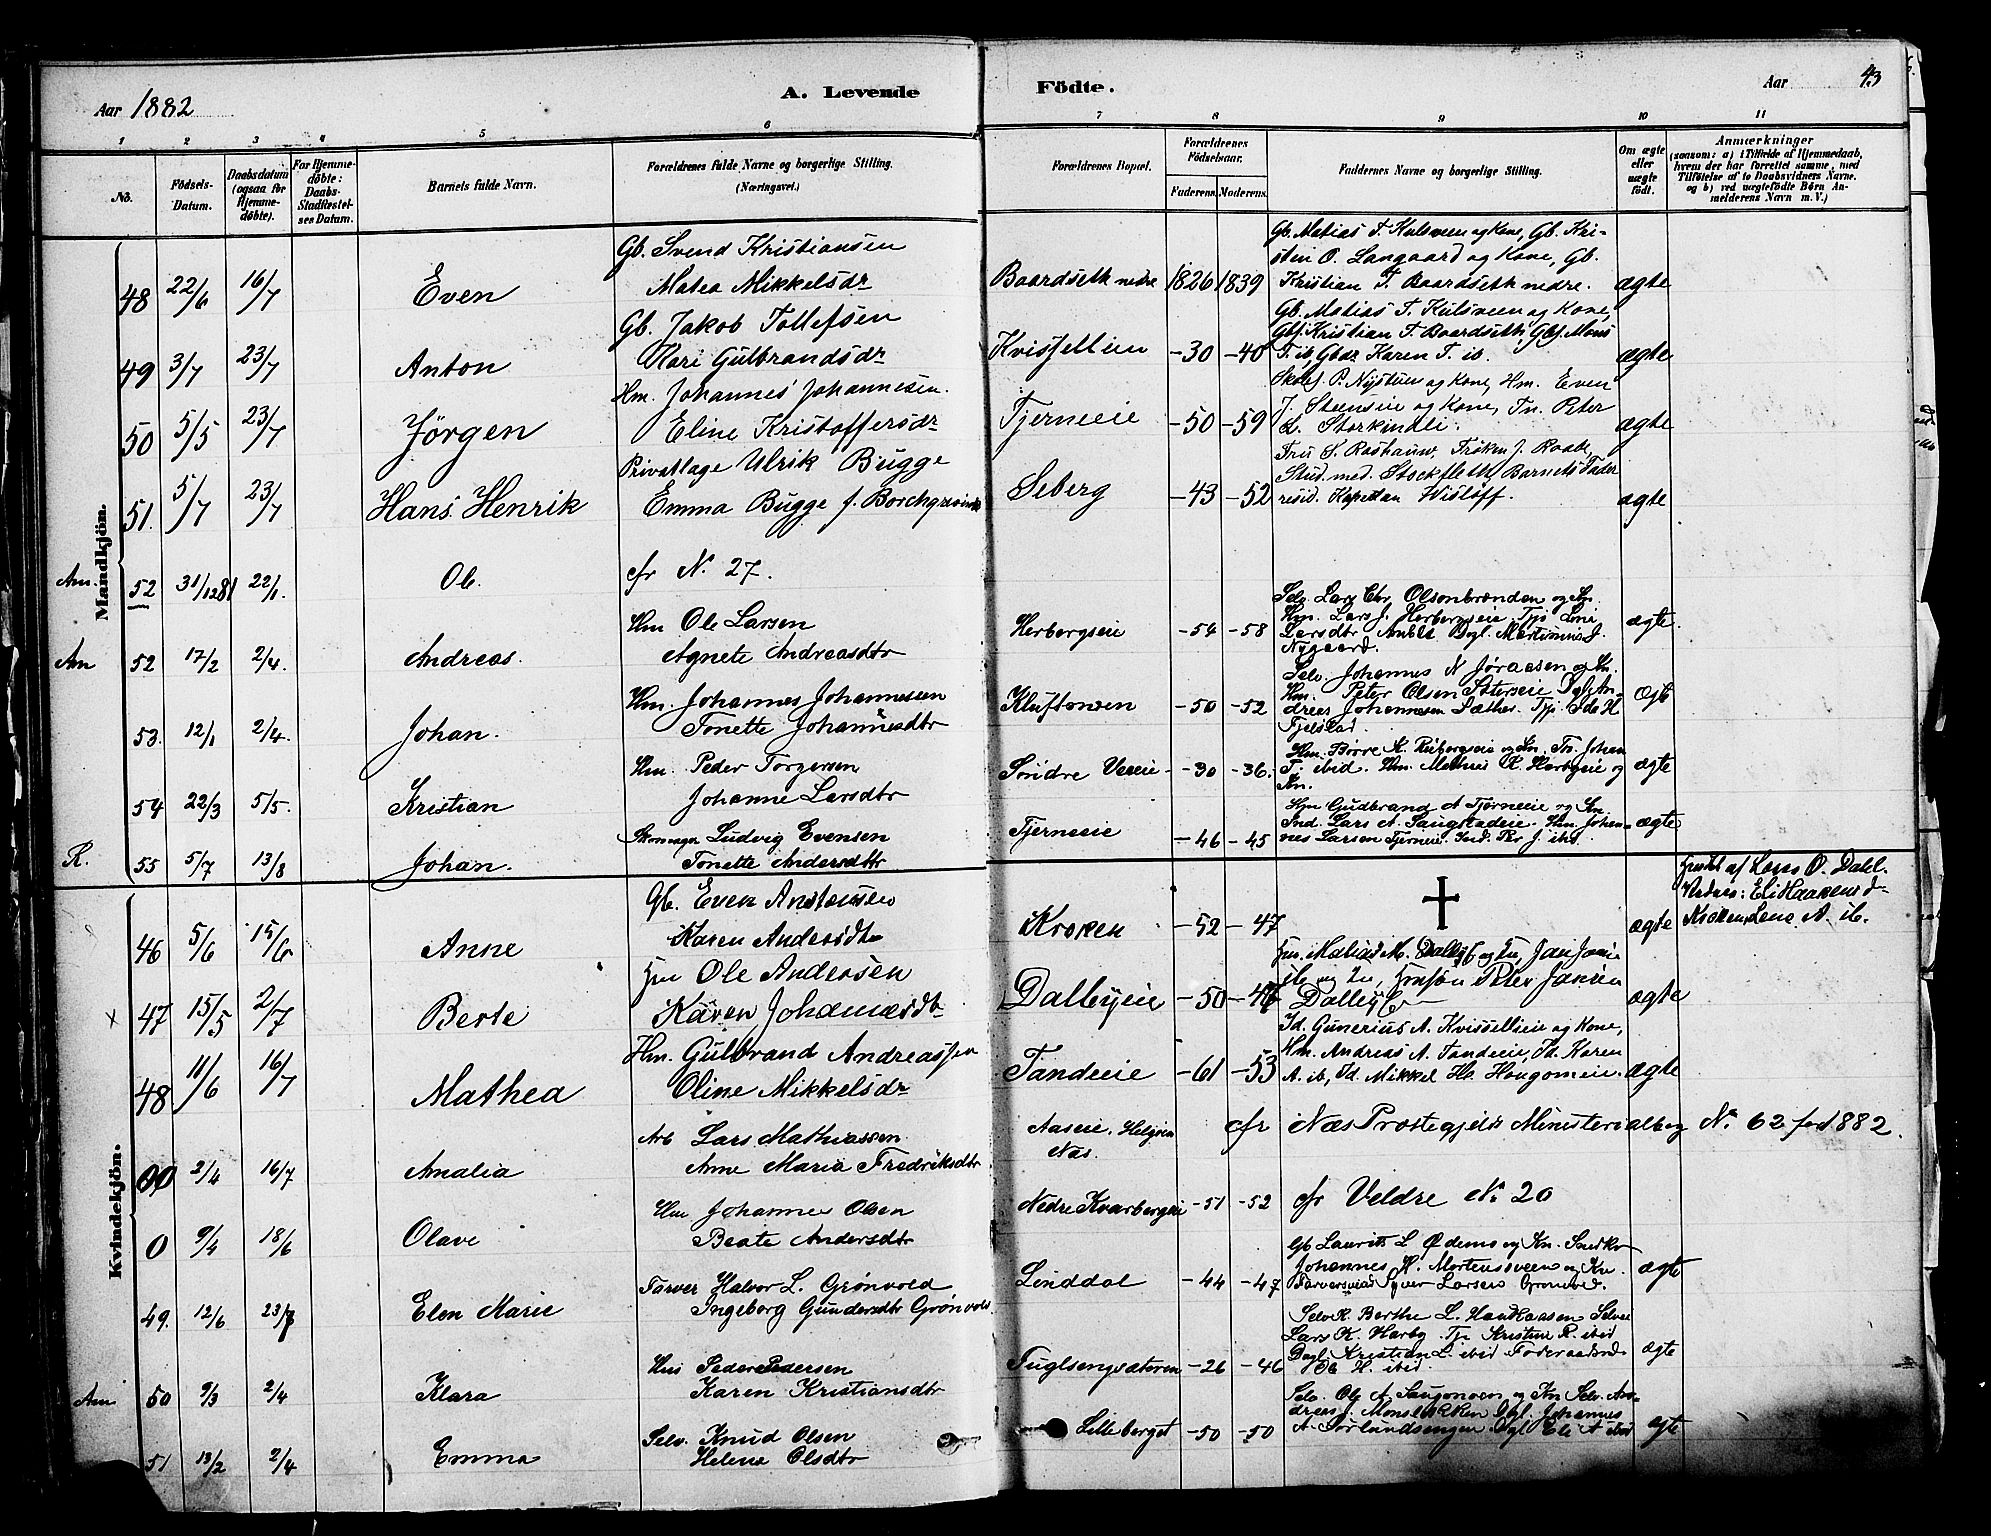 Aar 1882
A. Levende
Födte.
Aar
43
1 2 3 4 5 6 7 8 9 10 11
No.
Födsels-Datum.
Daabsdatum (ogsaa for Hjemmedöbte).
For Hjemmedöbte: Daabs-Stadfæstelses Datum.
Barnets fulde Navn.
Forældrenes fulde Navne og borgerlige Stilling. (Næringsvei.)
Forældrenes Bopæl.
Forældrenes Födselsaar.
Faderens. Moderens.
Faddernes Navne og borgerlige Stilling.
Om ægte eller uægte födt.
Anmærkninger (saasom: a) i Tilfælde af Hjemmedaab, hvem der har forrettet samme, med Tilföielse af to Daabsvidners Navne, og b) ved uægtefödte Börn Anmelderens Navn m. V.)
Mandkjön.
48 22/6 16/7 Even
Gb. Svend Kristiansen
Matea Mikkelsdr
Baardseth nedre 1826 1839
Gb. Matias T. Kulsveen og Kone, Gb. Kri-
stian O. Langaard og Kone, Gb.
Kristian T. Baardseth nedre.
ægte
49 3/7 23/7 Anton
Gb. Jakob Tollefsen
Mari Gulbrandsdr
-30 -40
Gb. Matias T. Kulsveen og Kone,
Gbs. Kristian T. Baardseth, Gbs. Mons
T. ib, Gbdr Karen T. ib.
ægte
50 5/5 23/7 Jörgen
Hm. Johannes Johannesen.
Eline Kristoffersdr
Tjerneeie -50 -59
Skoles. P. Nystuen og Kone, Hm. Even
J. Steenseie og Kone, Tn. Peter
L. Storkindli.
ægte
51. 5/7 23/7 Hans Henrik
Privatlæge Ulrik Bugge
Emma Bugge f. Borchgrevink
Seberg -43 -52
Fru S. Rashauw, Fröken J. Raabe,
Stud. med. Stockfleth, Barnets Fader
resid. Kapellan Wislöff.
ægte
Am. 52 31/12 81 22/1. Ole
cfr N. 27.
Am 52 17/2 2/4. Andreas.
Hm Ole Larsen
Agnete Andreasdtr
Herbergseie -54 -58
Selv. Lars Chr. Olsenbrænden og Kn.
Hm. Lars J. Herbergseie Tpi Line
Larsdtr Ambli Ygl. Martinius J.
Nygaard.
ægte
53. 12/1 2/4. Johan.
Hm. Johannes Johannessen
Tonette Johannesdtr
-50 -52
Selv. Johannes N Jöraasen og Kn.
Hm. Peter Olsen Sæterseie Ygl. An-
dreas Johannessen Sæther Tpi Ida H
Fjelstad.
ægt
54 22/3 5/5 Kristian
Hm. Peder Torgersen
Johanne Larsdtr
Söndre Vereie -30 -36.
Hm. Börre K. og Kn. Tn. Johan
T. ibid. Hm. Mathis R. Harbyeie og
Kn.
ægte
R. 55 5/7 13/8 Johan.
Skomager Ludvig Evensen
Tonette Andersdtr
Tjerneeie -46 -45
Hm Gudbrand A Tjerneeie og Kn
Ind. Lars A. Saugstadeie. Hm. Johan-
nes Larsen Tjerneeie. Ind. Per J. ibid.
ægte
Kvindekjön.
46 5/6 15/6 Anne
Gb. Even Anstensen
Karen Andersdt
Kroken -52 -47
ægte
Hjmdbt af Lens O. Dahl.
Vidner: Eli Haakensd-
Kroken, Lene A. ib.
× 47 15/5 2/7 Berte
Hm Ole Andersen
Karen Johannesdt
Dalbyeie -50 -46
Hm. Matias M. Dalby E og Ko, Jan Jansen
ib og Ko, Hmsön Peter Jansen
Dalby E
ægte
48 11/6 16/7 Mathea
Hm. Gulbrand Andreassen
Oline Mikkelsdr
Tandeeie -61 -53
Id. Gunerius A. Kvissellieie og Kone,
Hm. Andreas A. Tandeeie, Id. Karen
A. ib, Id. Mikkel H. Haugomeie.
ægte
00 2/4 16/7 Amalia
Arb Lars Mathiassen.
Anne Maria Fredriksdtr
Aaseie, Helgöen
Næs.
cfr Næs Prestegjelds Ministerialbog No. 62 for 1882.
0 9/4 18/6 Olave
Hm Johannes Olsen
Beate Andersdtr
Nedre Kvarbergeie -51 -52
cfr Veldre No 20
49. 12/6 23/7 Elen Marie
Farver Halvor L. Grönvold
Ingeborg Gundersdtr Grönvold.
Linddal -44 -47
Gb Laurits L Ödemo og Kn. Snedker
Johannes H. Mortensveen og Kn.
Farversvend Syver Larsen Grönvold.
ægte
Am 50 9/3 2/4 Klara
Hm Peder Pedersen
Karen Kristiansdtr
Fuglsengsæteren -26 -46
Selv. K. Berthe L. Haakaasen Selve
Lars K. Harby. Tje Kristine R. ibid
Ygl. Kristian L. ibid Föderaadsmd
Ole H. ibid.
ægte
51 13/2 2/4 Emma
Selv. Knud Olsen
Helene Olsdtr
Lilleberget -50 -50
Selv. Ole A. Saugmoen og Kn Selv. An-
dreas J. Monslökken Ygl. Johannes
A. Sörlundsengen. Ygl Eli A ibid
ægte